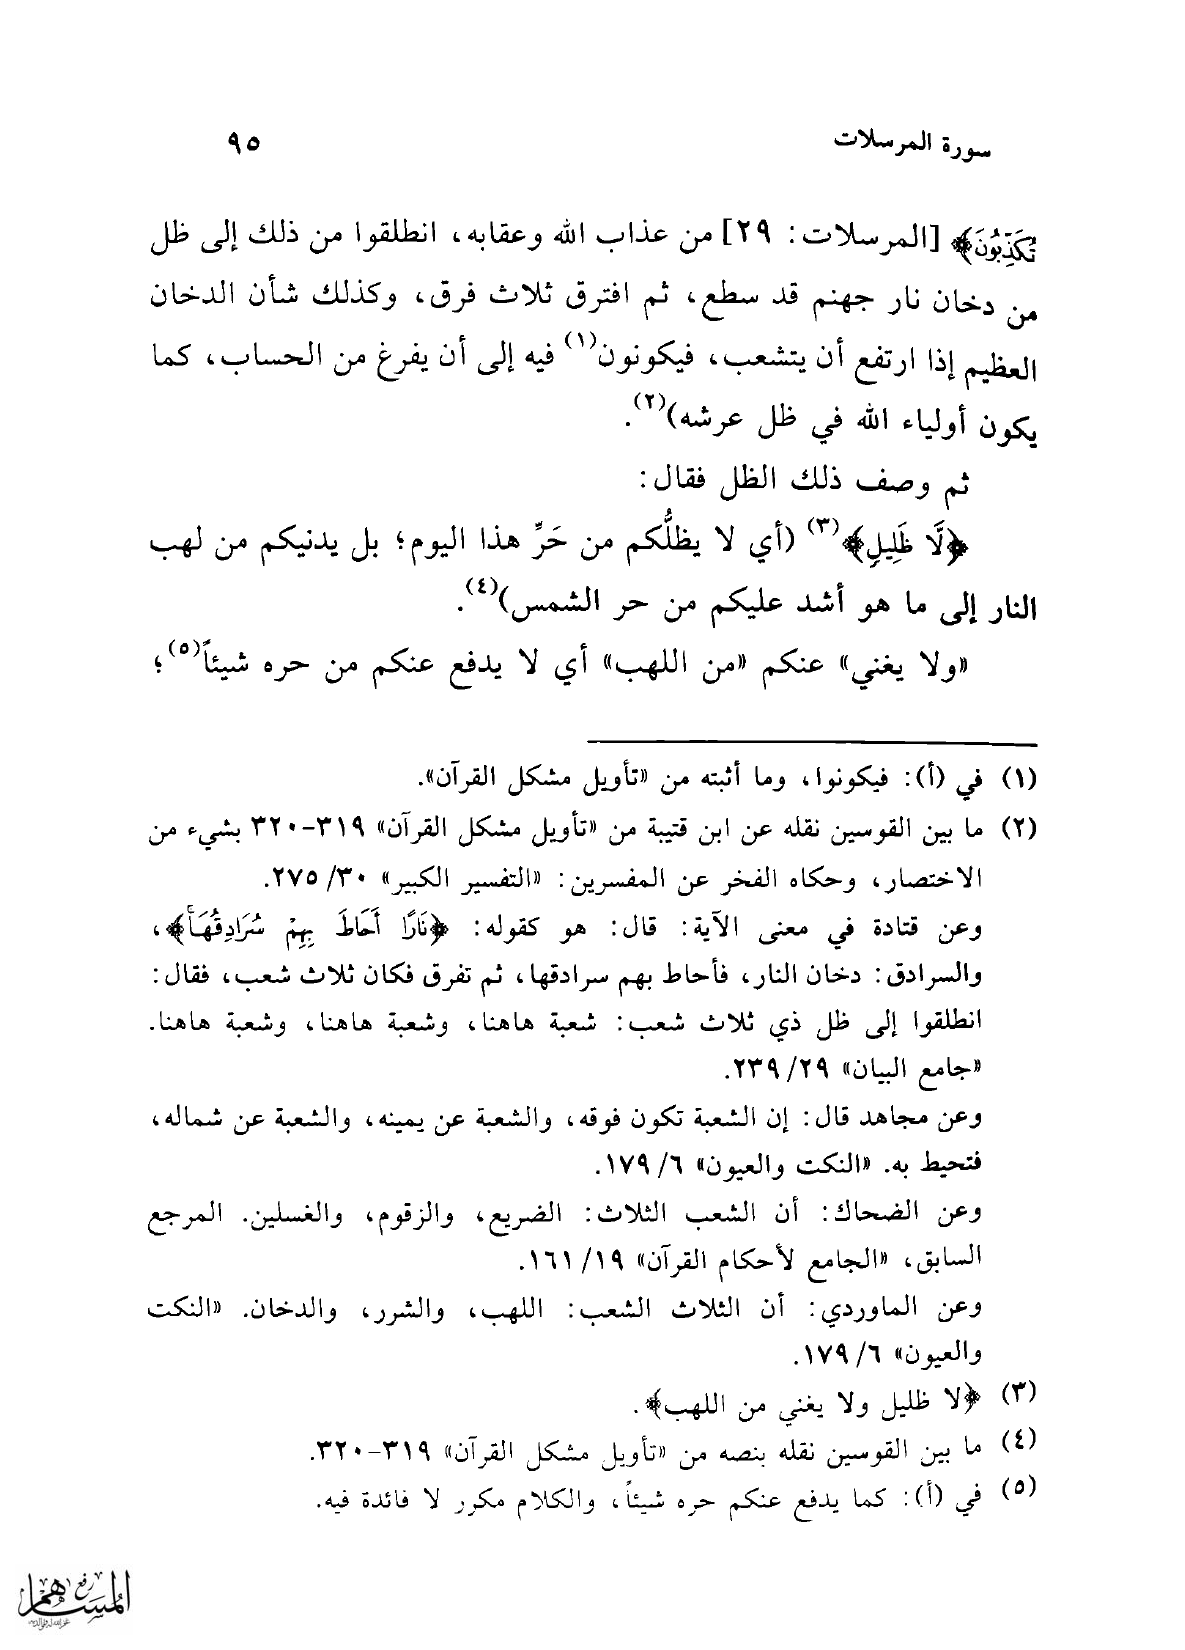 سورة المرسلات ٩٥
تُكَذِّبُونَ﴾ [المرسلات: ٢٩] من عذاب الله وعقابه، انطلقوا من ذلك إلى ظل
من دخان نار جهنم قد سطع، ثم افترق ثلاث فرق، وكذلك شأن الدخان
العظيم إذا ارتفع أن يتشعب، فيكونون(١) فيه إلى أن يفرغ من الحساب، كما
يكون أولياء الله في ظل عرشه)(٢).
ثم وصف ذلك الظل فقال:
﴿لَّا ظَلِيلٍ﴾(٣) (أي لا يظلُّكم من حَرِّ هذا اليوم؛ بل يدنيكم من لهب
النار إلى ما هو أشد عليكم من حر الشمس)(٤).
«ولا يغني» عنكم «من اللهب» أي لا يدفع عنكم من حره شيئاً(٥)؛
(١) في (أ): فيكونوا، وما أثبته من «تأويل مشكل القرآن».
(٢) ما بين القوسين نقله عن ابن قتيبة من «تأويل مشكل القرآن» ٣١٩-٣٢٠ بشيء من
الاختصار، وحكاه الفخر عن المفسرين: «التفسير الكبير» ٣٠/ ٢٧٥.
وعن قتادة في معنى الآية: قال: هو كقوله: ﴿نَارًا أَحَاطَ بِهِمْ سُرَادِقُهَا﴾،
والسرادق: دخان النار، فأحاط بهم سرادقها، ثم تفرق فكان ثلاث شعب، فقال:
انطلقوا إلى ظل ذي ثلاث شعب: شعبة هاهنا، وشعبة هاهنا، وشعبة هاهنا.
«جامع البيان» ٢٩/ ٢٣٩.
وعن مجاهد قال: إن الشعبة تكون فوقه، والشعبة عن يمينه، والشعبة عن شماله،
فتحيط به. «النكت والعيون» ٦/ ١٧٩.
وعن الضحاك: أن الشعب الثلاث: الضريع، والزقوم، والغسلين. المرجع
السابق، «الجامع لأحكام القرآن» ١٩/ ١٦١.
وعن الماوردي: أن الثلاث الشعب: اللهب، والشرر، والدخان. «النكت
والعيون» ٦/ ١٧٩.
(٣) ﴿لا ظليل ولا يغني من اللهب﴾.
(٤) ما بين القوسين نقله بنصه من «تأويل مشكل القرآن» ٣١٩-٣٢٠.
(٥) في (أ): كما يدفع عنكم حره شيئاً، والكلام مكرر لا فائدة فيه.